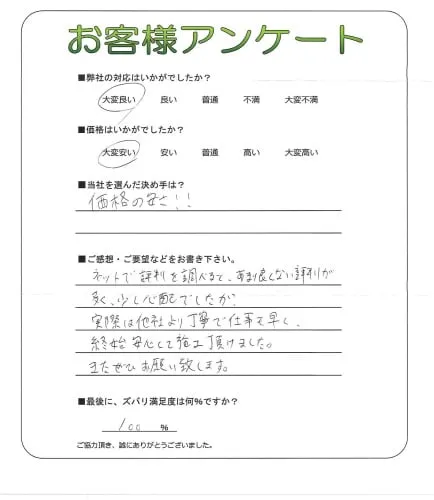 お客様アンケート
■弊社の対応はいかがでしたか？
大変良い 良い 普通 不満 大変不満
■価格はいかがでしたか？
大変安い 安い 普通 高い 大変高い
■当社を選んだ決め手は？
価格の安さ！！
■ご感想・ご要望などをお書き下さい。
ネットで評判を調べると、あまり良くない評判が
多く、少し心配でしたが、
実際は他社より丁寧で仕事も早く、
終始安心して施工頂けました。
またぜひお願い致します。
■最後に、ズバリ満足度は何％ですか？
100 %
ご協力頂き、誠にありがとうございました。